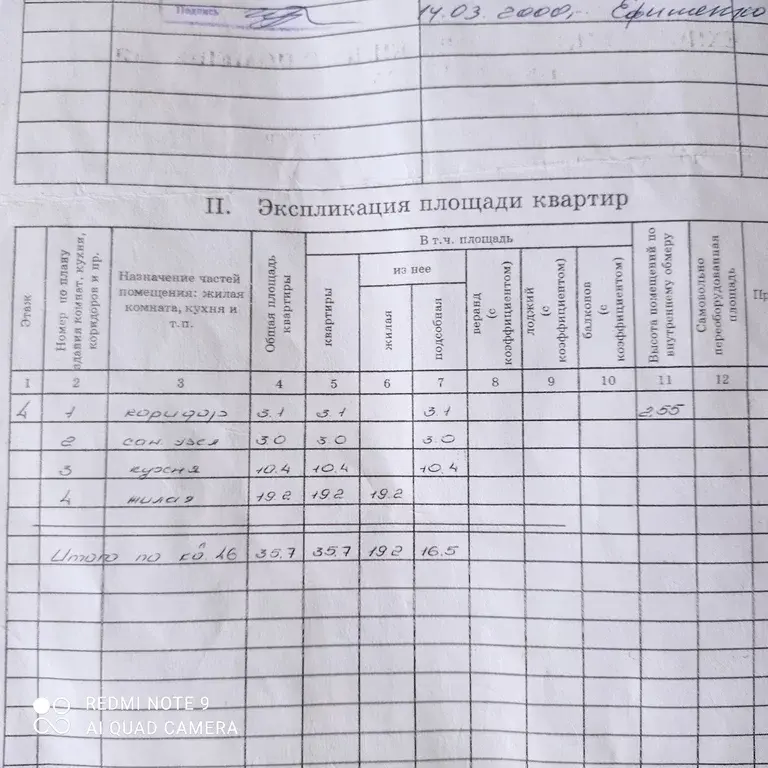 Подпись
14.03.2000г. Ефименко
II. Экспликация площади квартир
Этаж
Номер по плану здания комнат, кухни, коридоров и пр.
Назначение частей помещения: жилая комната, кухня и т.п.
Общая площадь квартиры
В т.ч. площадь
квартиры
из нее
жилая
подсобная
веранд (с коэффициентом)
лоджий (с коэффициентом)
балконов (с коэффициентом)
Высота помещений по внутреннему обмеру
Самовольно переоборудованная площадь
Пр
1 2 3 4 5 6 7 8 9 10 11 12
4 1 коридор 3.1 3.1 3.1 2.55
2 сан. узел 3.0 3.0 3.0
3 кухня 10.4 10.4 10.4
4 жилая 19.2 19.2 19.2
Итого по кв. 46 35.7 35.7 19.2 16.5
REDMI NOTE 9
AI QUAD CAMERA